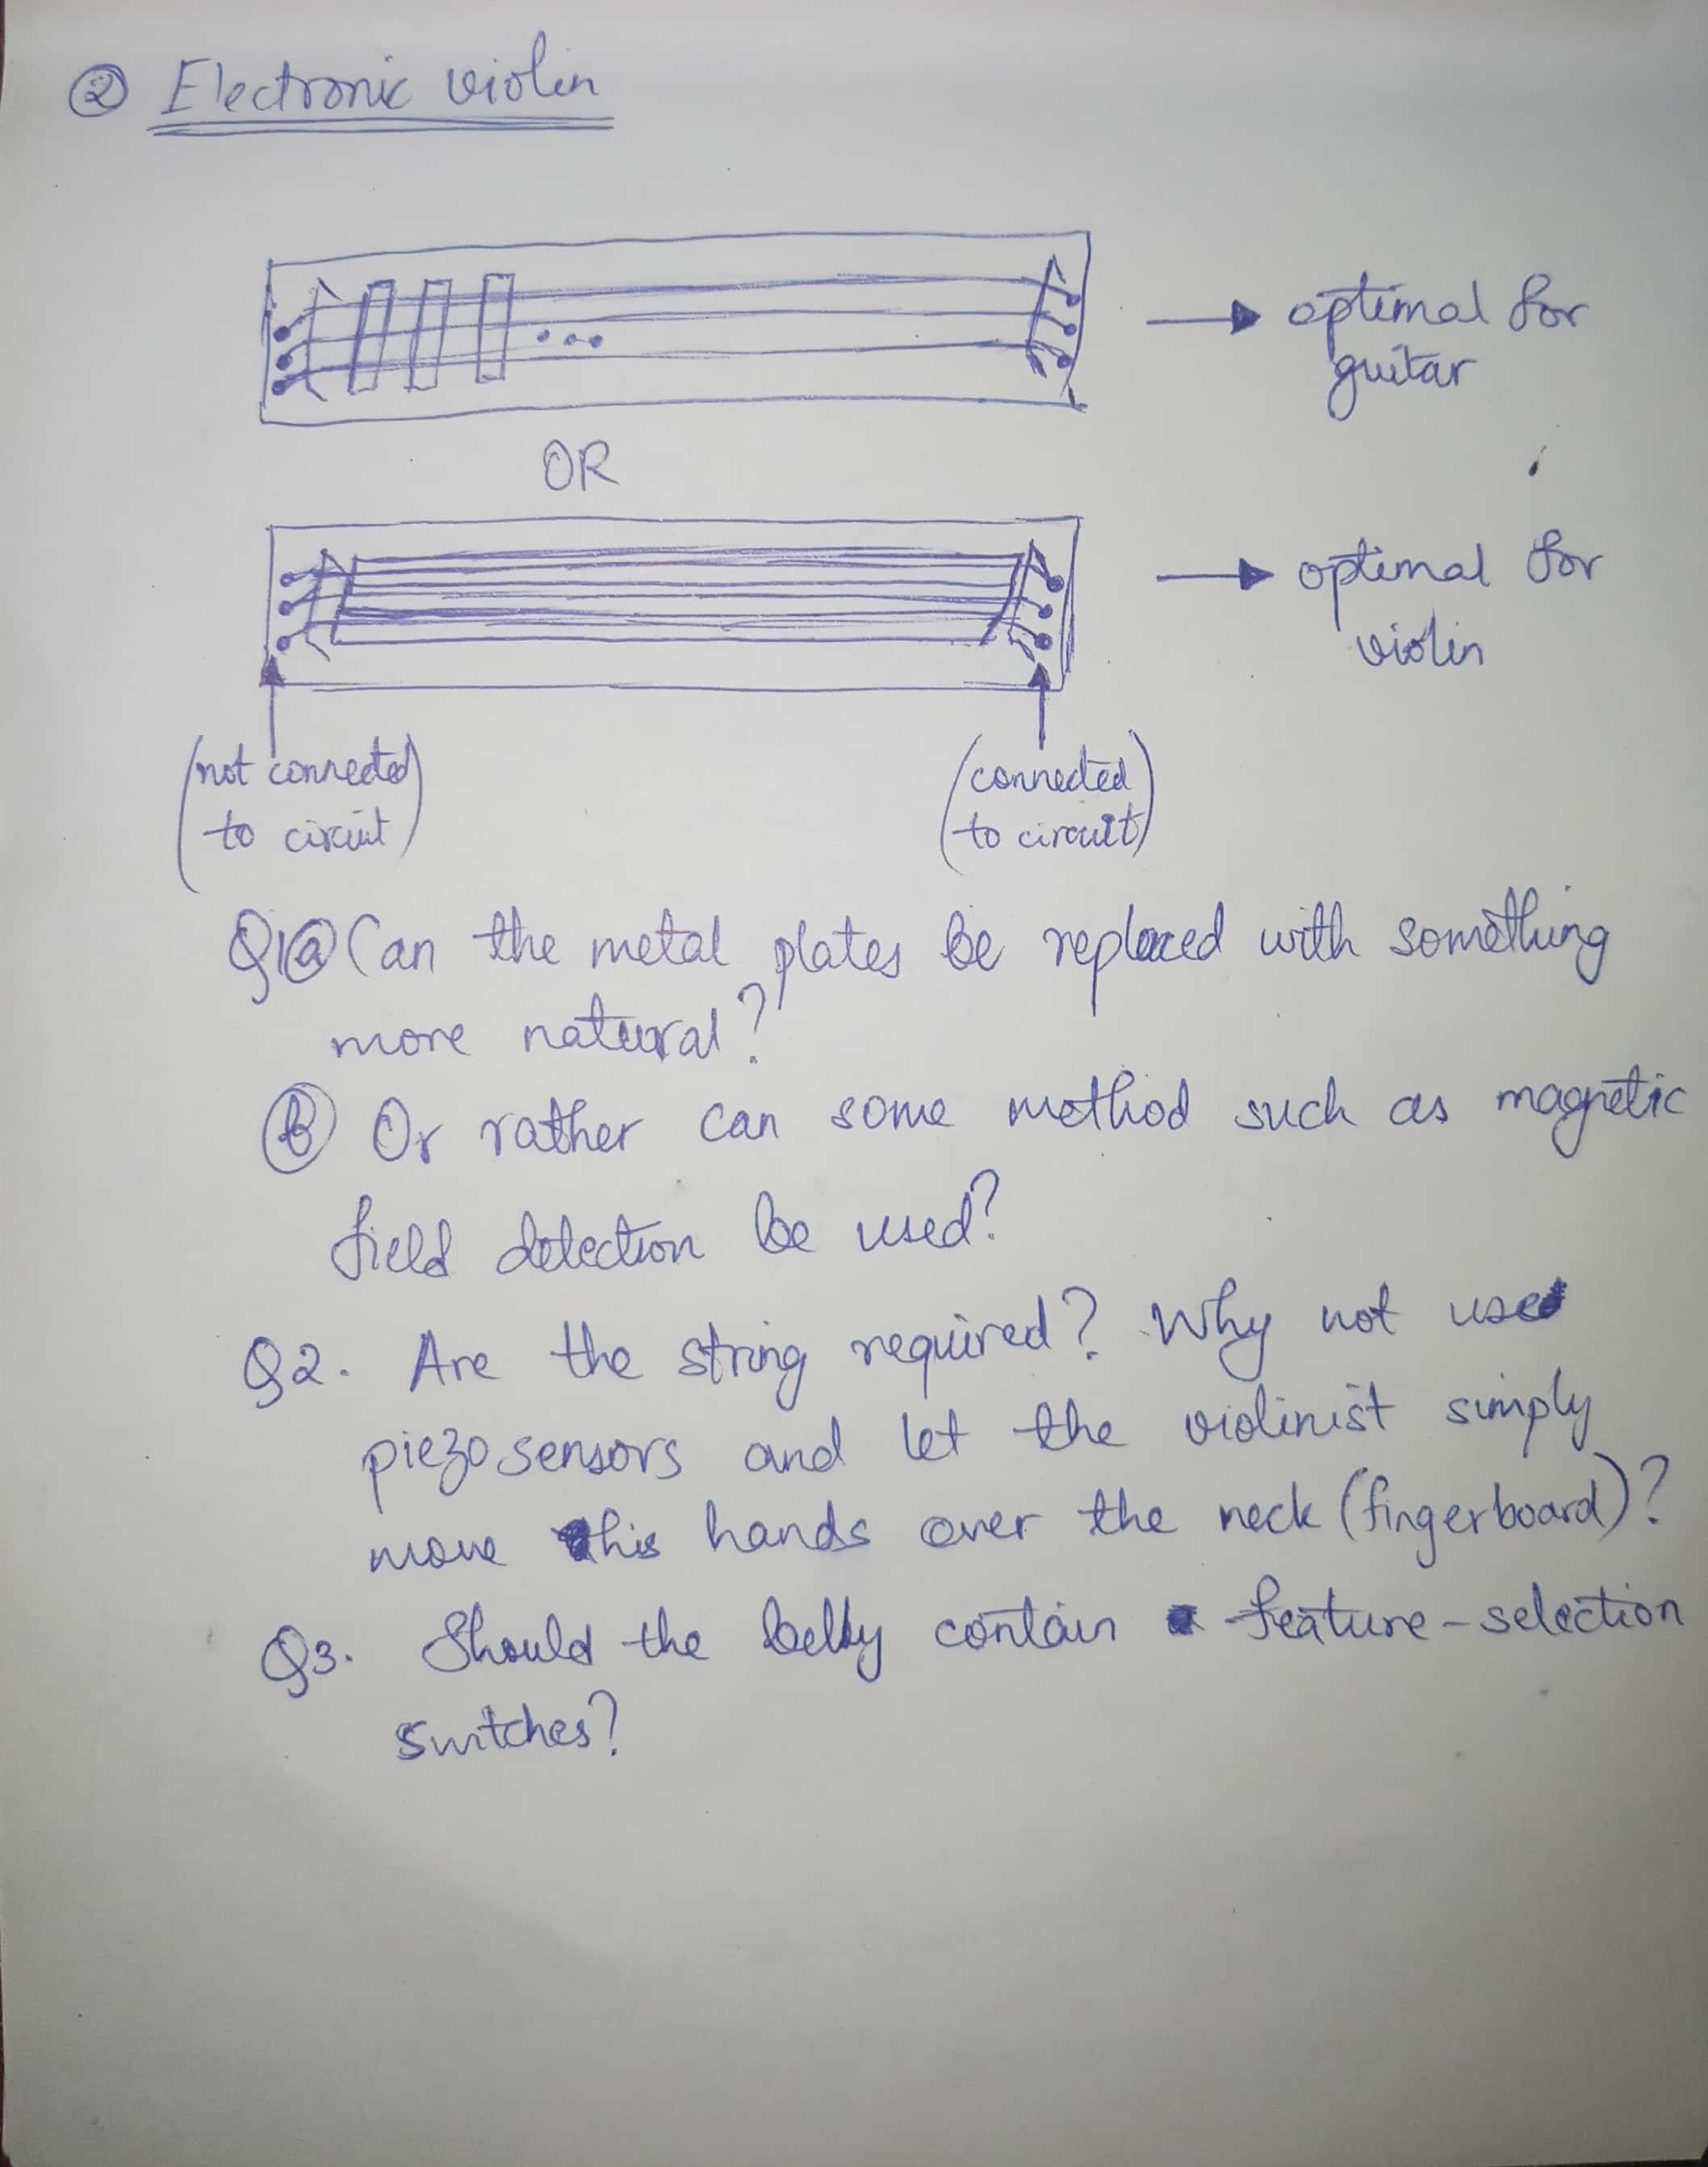 ② Electronic violin
→ optimal for
guitar
...
OR
→ optimal for
violin
(not connected
to circuit)
(connected
to circuit)
Q1ⓐ Can the metal plates be replaced with something
more natural?
ⓑ Or rather can some method such as magnetic
field detection be used?
Q2. Are the string required? Why not use
piezo sensors and let the violinist simply
move his hands over the neck (fingerboard)?
Q3. Should the belly contain feature-selection
switches?